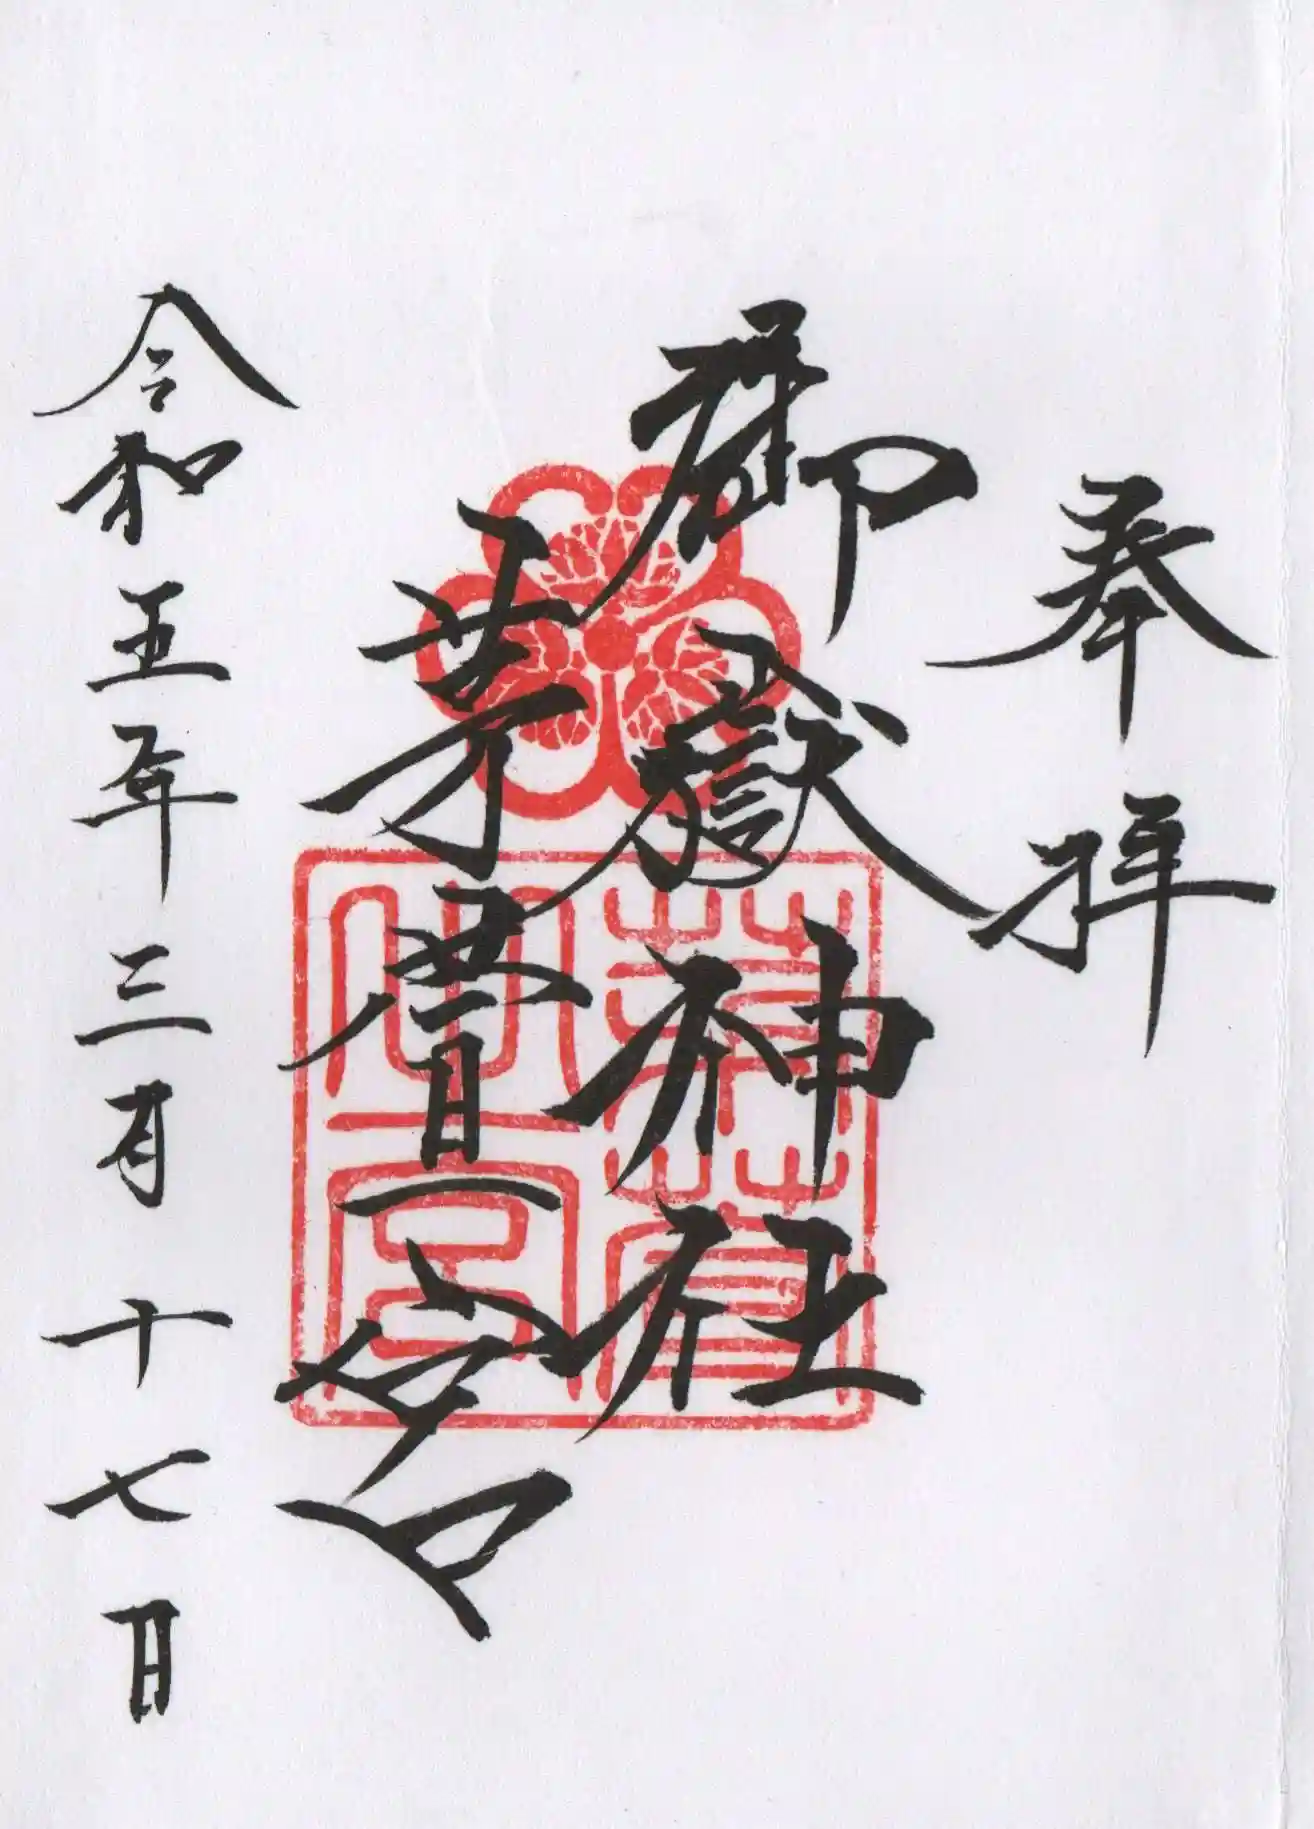 奉拝
御嶽神社
茅萱一宮
令和五年三月十七日